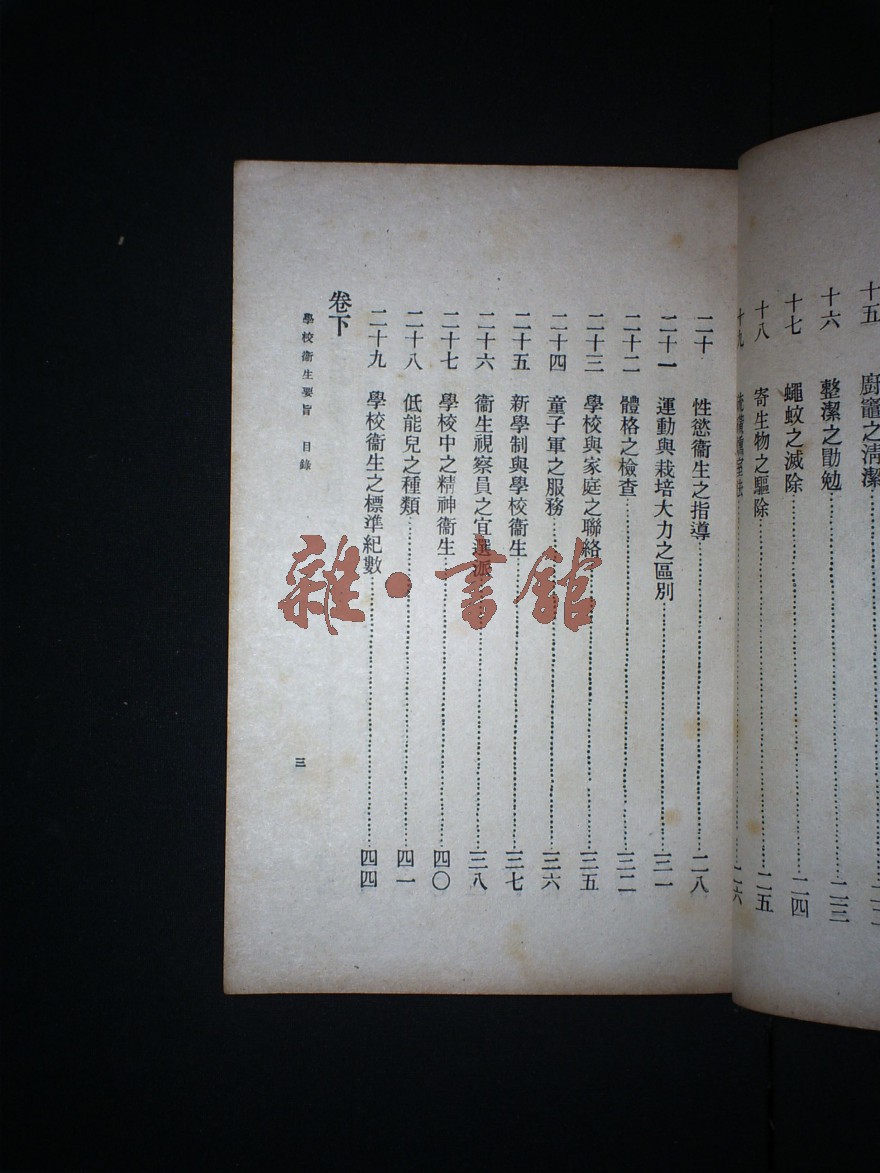 十五 廚竈之清潔
十六 整潔之勖勉 二三
十七 蠅蚊之滅除 二四
十八 寄生物之驅除 二五
十九 二六
二十 性慾衞生之指導 二八
二十一 運動與栽培大力之區別 三一
二十二 體格之檢查 三二
二十三 學校與家庭之聯絡 三五
二十四 童子軍之服務 三六
二十五 新學制與學校衞生 三七
二十六 衞生視察員之宜選派 三八
二十七 學校中之精神衞生 四〇
二十八 低能兒之種類 四一
二十九 學校衞生之標準紀數 四四
卷下
學校衞生要旨 目錄 三
雜·書館